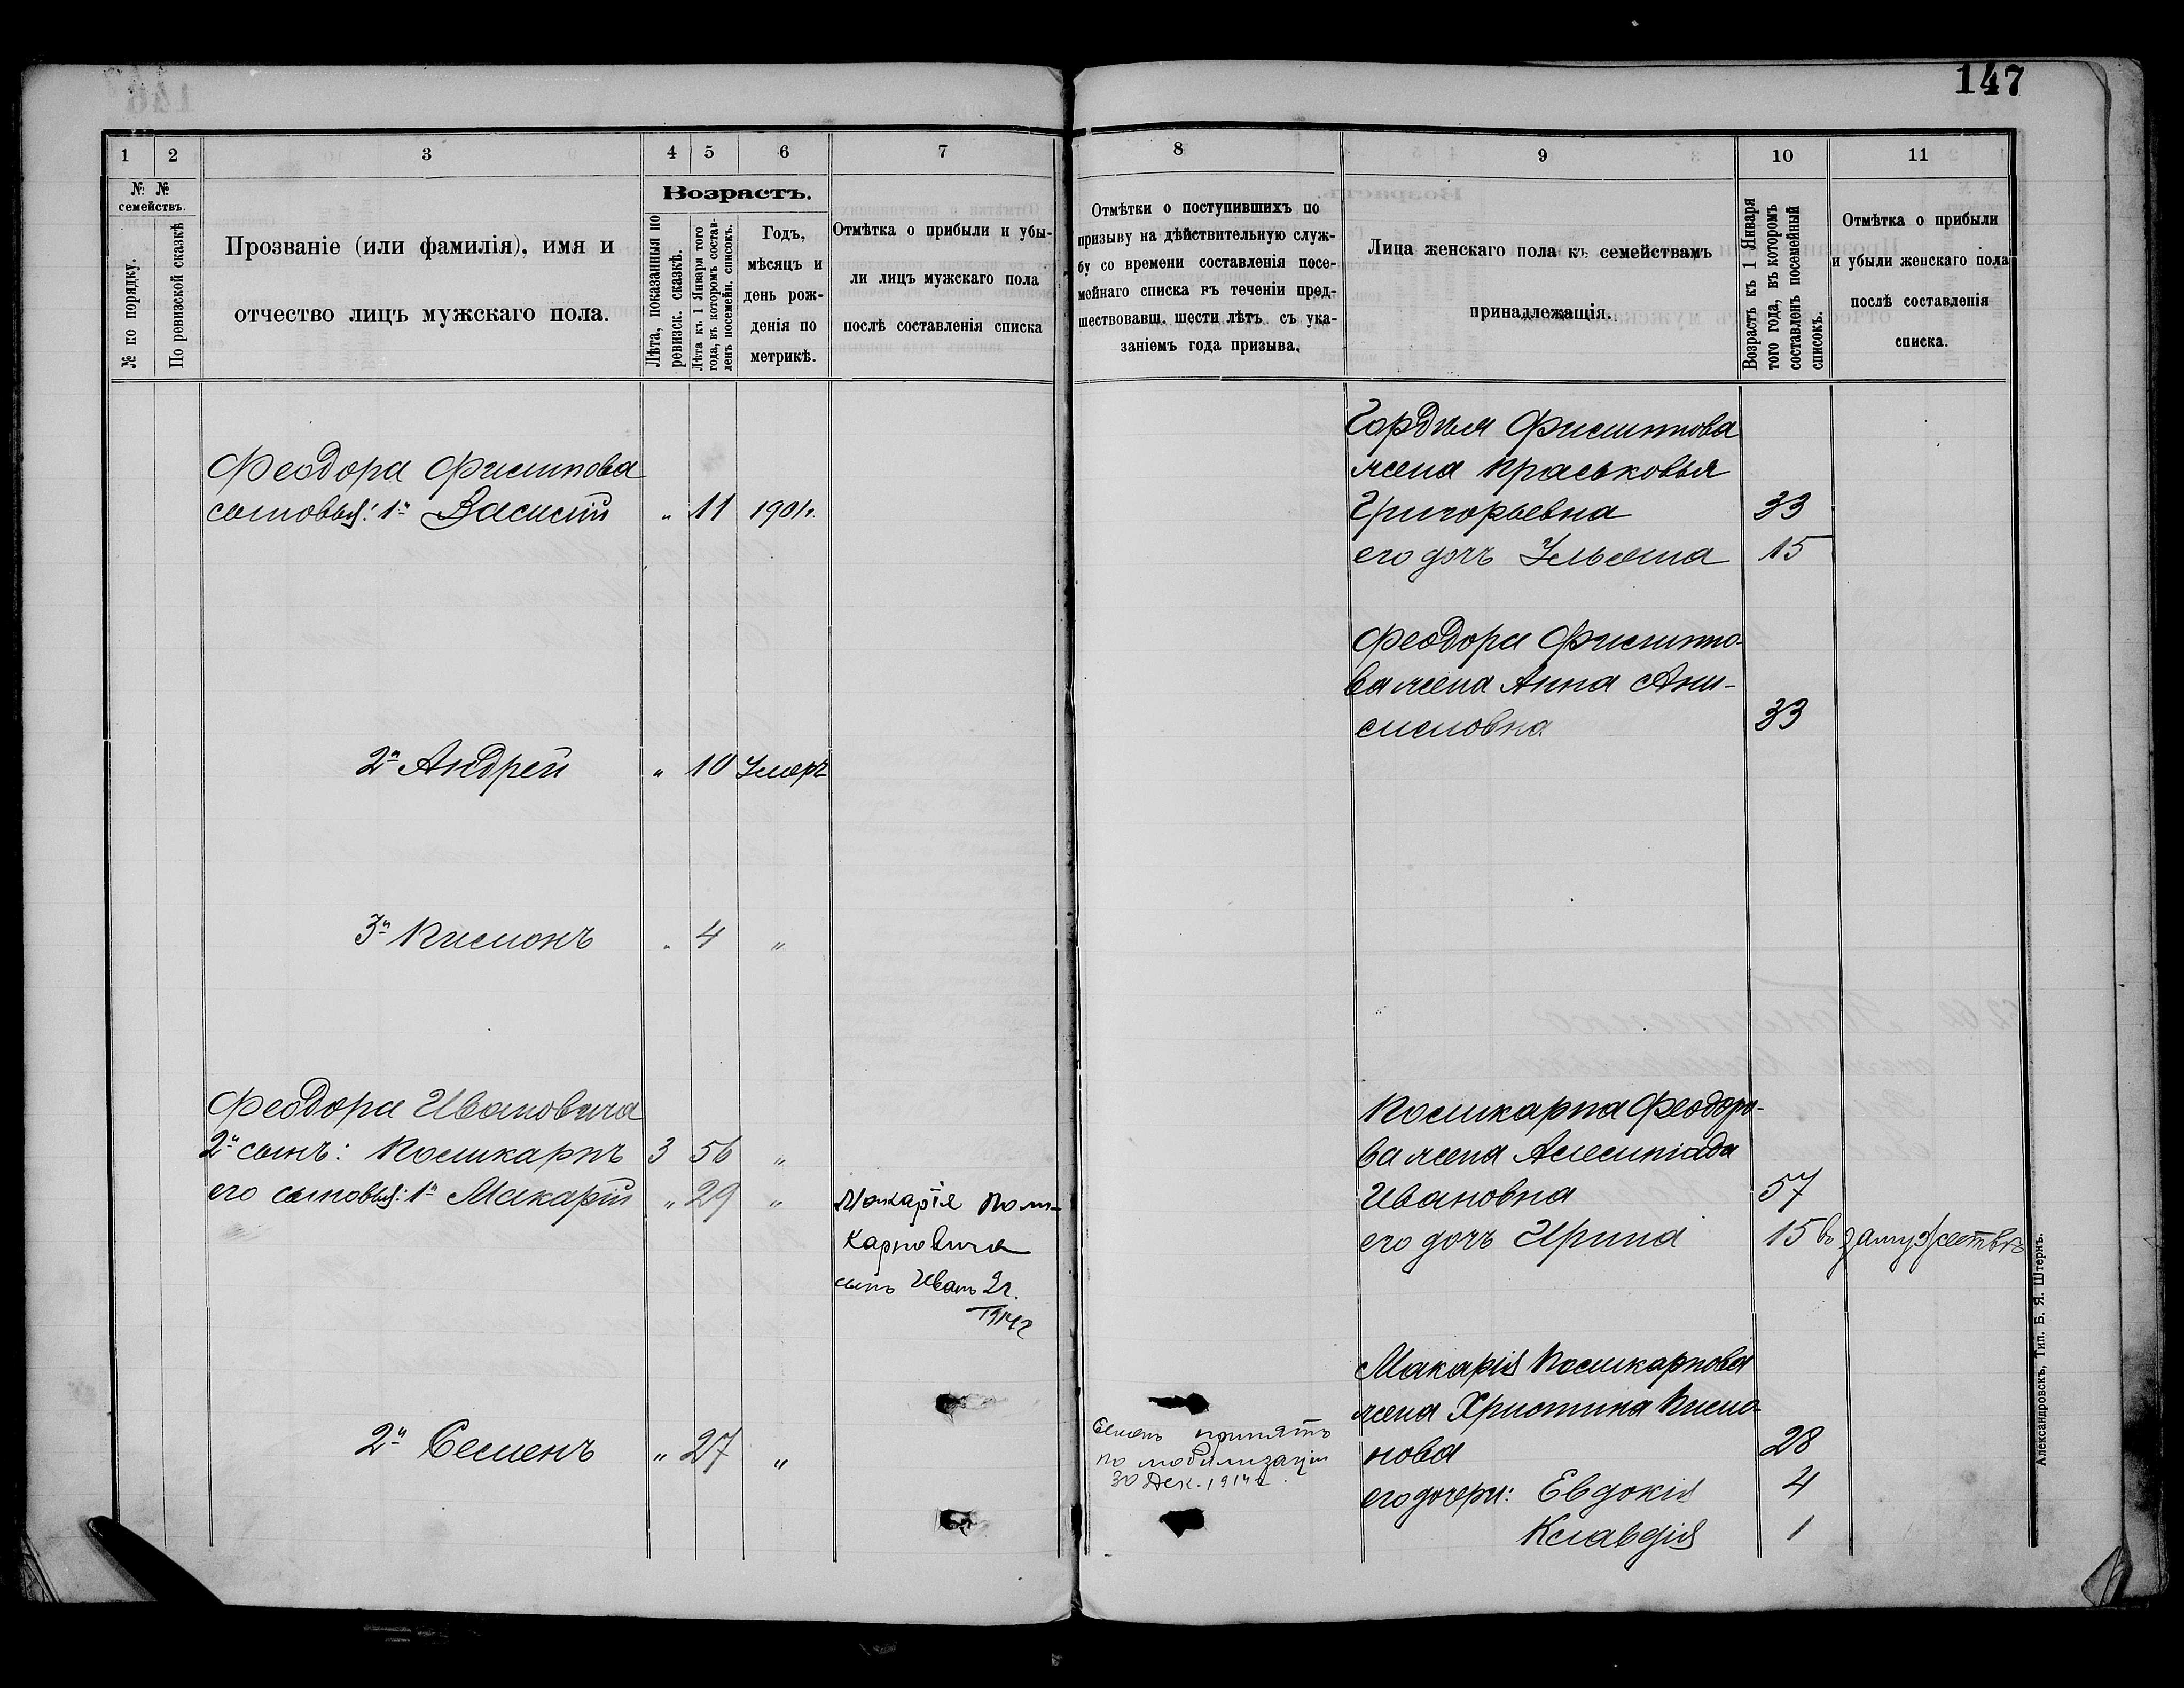 147
1
2
3
4
5
6
7
№ № семействъ.
№ по порядку.
По ревизской сказкѣ
Прозваніе (или фамилія), имя и
отчество лицъ мужскаго пола.
Возрастъ.
Лѣта, показанныя по
ревизск. сказкѣ.
Лѣта къ 1 Января того
года, въ которомъ состав-
ленъ посемейн. списокъ.
Годъ,
мѣсяцъ и
день рож-
денія по
метрикѣ.
Отмѣтка о прибыли и убы-
ли лицъ мужскаго пола
послѣ составленія списка
Феодора Филипова
сыновья: 1й Василій " 11 1901г.
2й Андрей " 10 Умеръ
3й Филимонъ " 4 "
Феодора Ивановича
2й сынъ: Поликарпъ 3 56 "
его сыновья: 1й Макарій " 29 "
Макарія Поли-
карповича
сынъ Иванъ 2г.
1914г
2й Семенъ " 27 "
8
9
10
11
Отмѣтки о поступившихъ по
призыву на дѣйствительную служ-
бу со времени составленія посе-
мейнаго списка въ теченіи пред-
шествовавш. шести лѣтъ съ ука-
заніемъ года призыва.
Лица женскаго пола къ семействамъ
принадлежащія.
Возрастъ къ 1 Января
того года, въ которомъ
составленъ посемейный
списокъ.
Отмѣтка о прибыли
и убыли женскаго пола
послѣ составленія
списка.
Гордѣя Филиппова
жена Праськовья
Григорьевна 33
его дочь Ульяна 15
Феодора Филиппо-
ва жена Анна Ани-
симовна 33
Поликарпа Феодоро-
ва жена Олимпіада
Ивановна 57
его дочь Ирина 15 въ замужествѣ
Макарія Поликарпова
жена Христина Филимо-
нова 28
его дочери: Евдокія 4
Клавдія 1
Семенъ принятъ
по мобилизаціи
30 Дек. 1914 г.
Александровскъ, Тип. Б. Я. Штернъ.